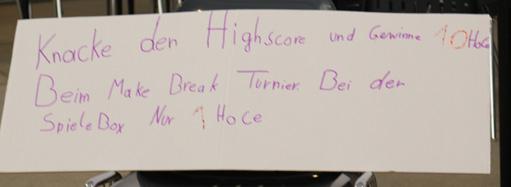 Knacke den Highscore und Gewinne 10 HoCe
Beim Make Break Turnier. Bei der
SpieleBox Nur 1 HoCe